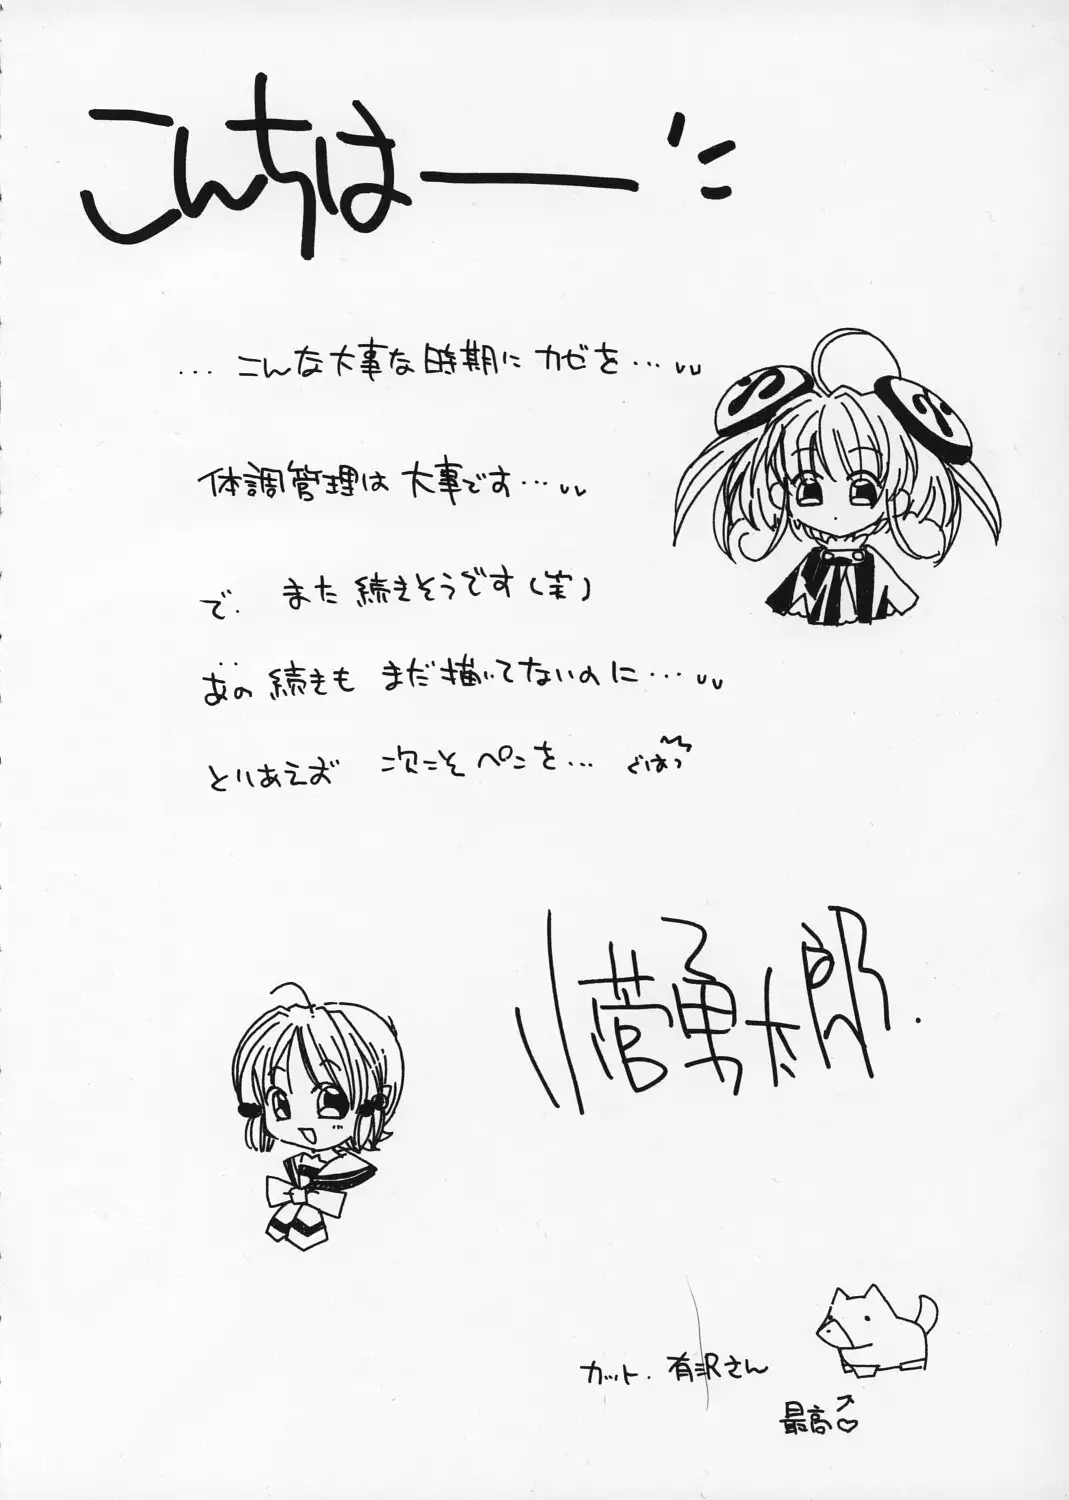 こんちはー
…こんな大事な時期にカゼを…
体調管理は大事です…
で、また続きそうです(笑)
あの続きもまだ描いてないのに…
とりあえず 次こそペンを… ぐはっ
小菅勇太郎.
カット.有沢さん
最高♡